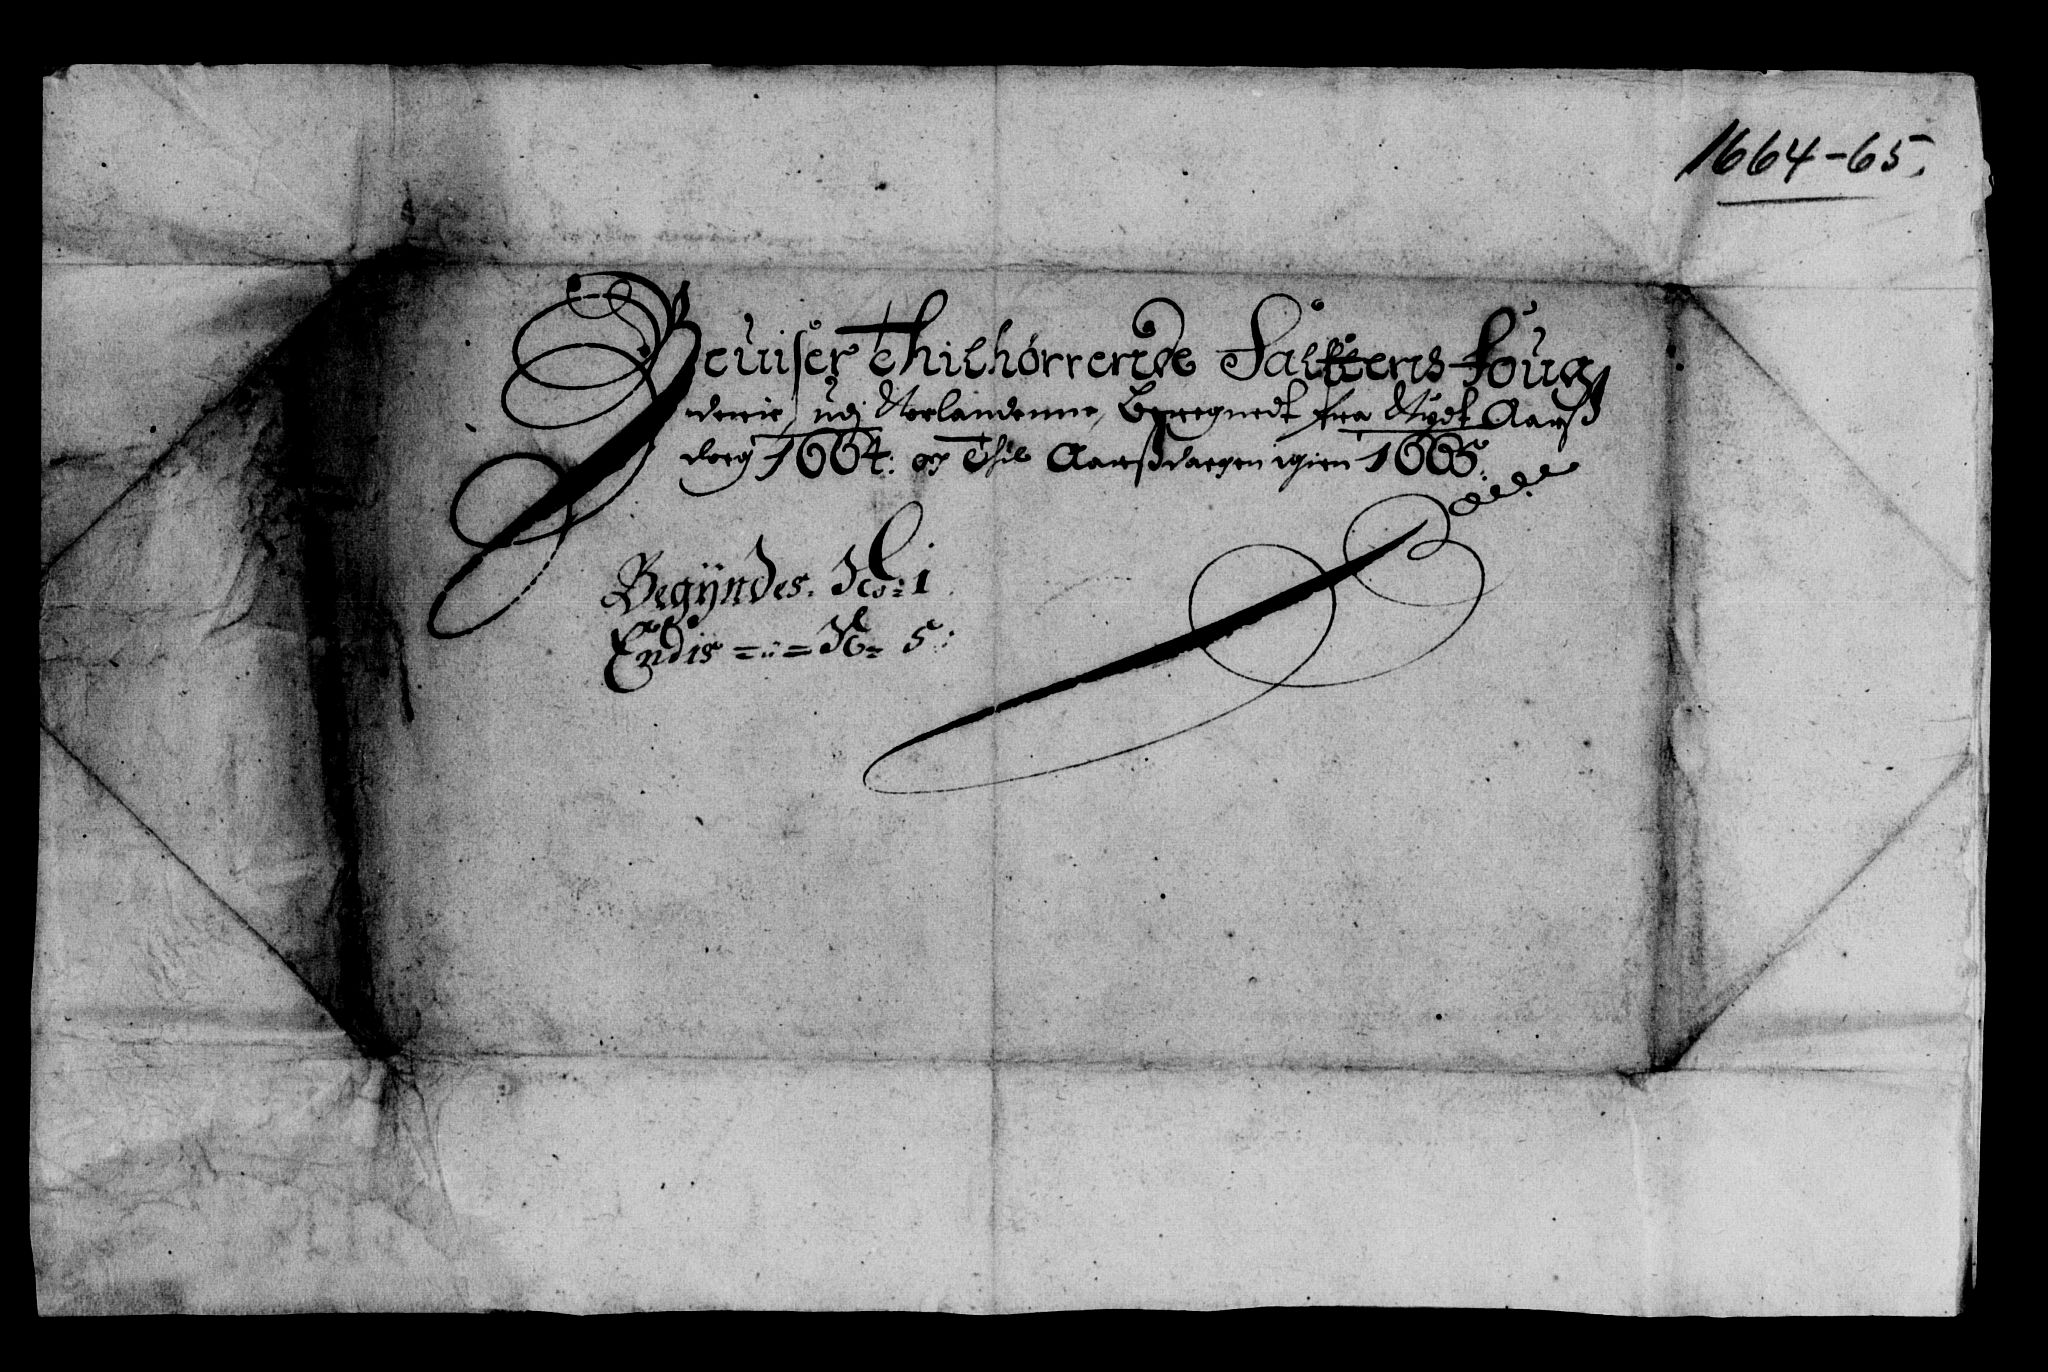 1664-65.
Beuiser Thilhørrende Saltens foug
derie, udj Norlandenne, Beregnedt fra Nydt Aarß
daeg 1664: og Thil Aarßdaegen igien 1665:
Begÿndes. No: 1
Endis =:= No= 5: